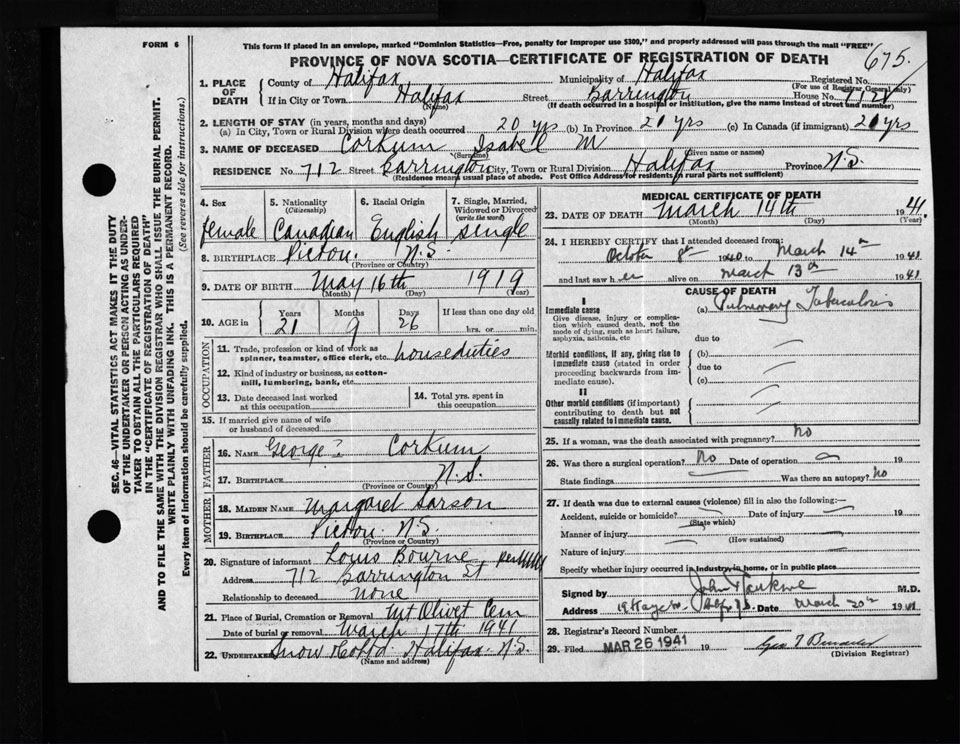 FORM 6
This form if placed in an envelope, marked "Dominion Statistics—Free, penalty for improper use $300," and properly addressed will pass through the mail "FREE"
675.
PROVINCE OF NOVA SCOTIA—CERTIFICATE OF REGISTRATION OF DEATH
1. PLACE OF DEATH
County of Halifax Municipality of Halifax Registered No.
(For use of Registrar General only)
If in City or Town Halifax Street Barrington House No. 712
(Name) (If death occurred in a hospital or institution, give the name instead of street and number)
2. LENGTH OF STAY (in years, months and days)
(a) In City, Town or Rural Division where death occurred 20 yrs (b) In Province 20 yrs (c) In Canada (if immigrant) 20 yrs
3. NAME OF DECEASED Corkum Isabell M
(Surname) (Given name or names)
RESIDENCE No. 712 Street Barrington City, Town or Rural Division Halifax Province N.S.
(Residence means usual place of abode. Post Office Address for residents in rural parts not sufficient)
4. Sex female
5. Nationality (Citizenship) Canadian
6. Racial Origin English
7. Single, Married, Widowed or Divorced (write the word) single
8. BIRTHPLACE Pictou. N.S.
(Province or Country)
9. DATE OF BIRTH May 16th 1919
(Month) (Day) (Year)
10. AGE in Years 21 Months 9 Days 26 If less than one day old hrs. or min.
OCCUPATION
11. Trade, profession or kind of work as spinner, teamster, office clerk, etc. house duties
12. Kind of industry or business, as cotton-mill, lumbering, bank, etc.
13. Date deceased last worked at this occupation
14. Total yrs. spent in this occupation
15. If married give name of wife or husband of deceased
FATHER
16. NAME George? Corkum
17. BIRTHPLACE N.S.
(Province or Country)
MOTHER
18. MAIDEN NAME Margaret Sarson
19. BIRTHPLACE Pictou. N.S.
(Province or Country)
20. Signature of informant Louis Bourne
Address 712 Barrington St
Relationship to deceased None
21. Place of Burial, Cremation or Removal Mt Olivet Cem
Date of burial or removal March 17th 1941
22. UNDERTAKER Snow & Co Ltd. Halifax. N.S.
(Name and address)
MEDICAL CERTIFICATE OF DEATH
23. DATE OF DEATH March 14th 1941.
(Month) (Day)
24. I HEREBY CERTIFY that I attended deceased from:
October 8th 1940 to March 14th 1941
and last saw her alive on March 13th 1941
CAUSE OF DEATH
I
Immediate cause
Give disease, injury or complication which caused death, not the mode of dying, such as heart failure, asphyxia, asthenia, etc
(a) Pulmonary Tuberculosis
due to
Morbid conditions, if any, giving rise to immediate cause (stated in order proceeding backwards from immediate cause).
(b)
due to
(c)
II
Other morbid conditions (if important) contributing to death but not causally related to immediate cause.
25. If a woman, was the death associated with pregnancy? No
26. Was there a surgical operation? No Date of operation 19
State findings Was there an autopsy? No
27. If death was due to external causes (violence) fill in also the following:—
Accident, suicide or homicide? Date of injury 19
(State which)
Manner of injury
(How sustained)
Nature of injury
Specify whether injury occurred in industry, in home, or in public place
Signed by M.D.
Address Date March 20th 1941
28. Registrar's Record Number
29. Filed MAR 26 1941 19
(Division Registrar)
SEC. 46—VITAL STATISTICS ACT MAKES IT THE DUTY
OF THE UNDERTAKER OR PERSON ACTING AS UNDER-
TAKER TO OBTAIN ALL THE PARTICULARS REQUIRED
IN THE "CERTIFICATE OF REGISTRATION OF DEATH"
AND TO FILE THE SAME WITH THE DIVISION REGISTRAR WHO SHALL ISSUE THE BURIAL PERMIT.
WRITE PLAINLY WITH UNFADING INK. THIS IS A PERMANENT RECORD.
Every item of information should be carefully supplied. (See reverse side for instructions.)